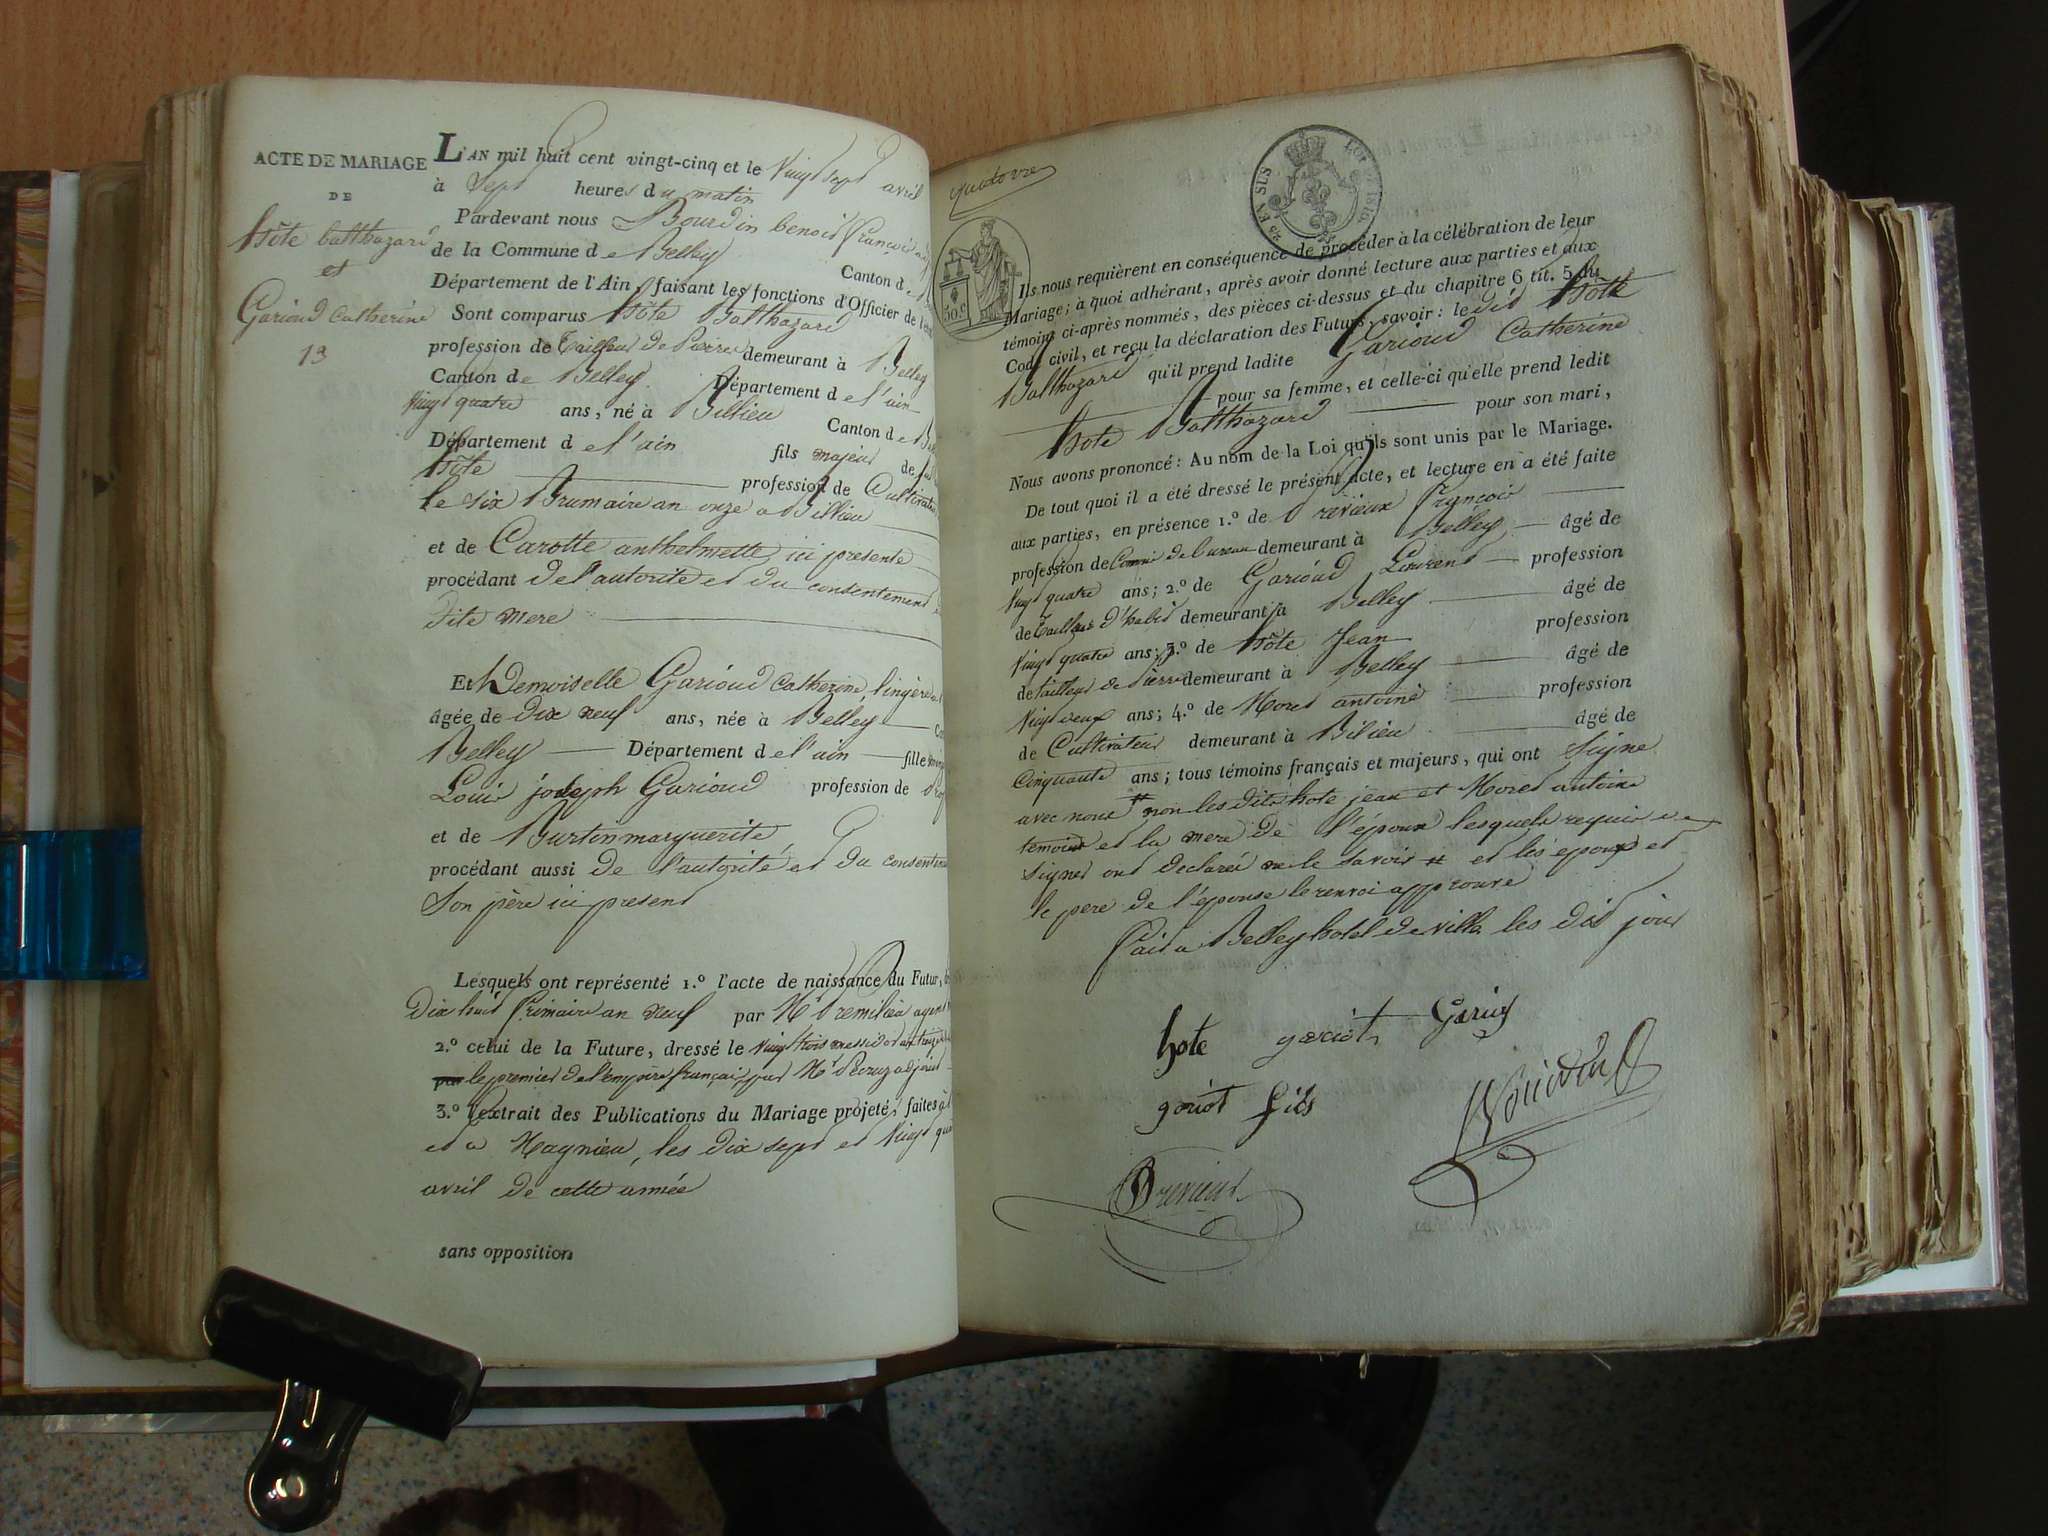 ACTE DE MARIAGE
DE
hôte balthazard
et
Gariod Catherine
13
L'AN mil huit cent vingt-cinq et le Vingt sept avril
à Sept heures du matin
Pardevant nous Bourdin benoit françois
de la Commune de Belley Canton de
Département de l'Ain, faisant les fonctions d'Officier de
Sont comparus hôte Balthazard
profession de Tailleur de Pierre demeurant à Belley
Canton de Belley Département de l'ain
Vingt quatre ans, né à Billieu Canton de
Département de l'ain fils majeur de
hôte profession de Cultivateur
le six Brumaire an onze a Billieu
et de Carotte anthelmette ici presente
procédant de l'autorite et du consentement
dite mere
Et Demoiselle Gariod Catherine, lingère
âgée de dix neuf ans, née à Belley
Belley Département de l'ain fille
Louis joseph Gariod profession de
et de Burtin marguerite
procédant aussi de l'autorité et du consentement
Son père ici present
Lesquels ont représenté 1.° l'acte de naissance du Futur,
Dix huit frimaire an neuf par Mr Premilieu agent
2.° celui de la Future, dressé le Vingt trois messidor an treize
par le premier de l'empire français, par Mr adjoint
3.° l'extrait des Publications du Mariage projeté, faites
et a Magnieu, les dix sept et Vingt quatre
avril de cette année
sans opposition
quatorze
25 EN SUS
LOI 1816
50 C
Ils nous requièrent en conséquence de procéder à la célébration de leur
Mariage; à quoi adhérant, après avoir donné lecture aux parties et aux
témoins ci-après nommés, des pièces ci-dessus et du chapitre 6 tit. 5 du
Code civil, et reçu la déclaration des Futurs, savoir: le dit hôte
Balthazard qu'il prend ladite Gariod Catherine
pour sa femme, et celle-ci qu'elle prend ledit
hote Balthazard pour son mari,
Nous avons prononcé: Au nom de la Loi qu'ils sont unis par le Mariage.
De tout quoi il a été dressé le présent acte, et lecture en a été faite
aux parties, en présence 1.° de Previeux françois
profession de Commis de bureau demeurant à Belley âgé de
Vingt quatre ans; 2.° de Gariod Laurent profession
de Tailleur d'habit demeurant à Belley âgé de
Vingt quatre ans; 3.° de hôte Jean profession
de tailleur de Pierre demeurant à Belley âgé de
Vingt deux ans; 4.° de Moret antoine profession
de Cultivateur demeurant à Bilieu âgé de
Cinquante ans; tous témoins français et majeurs, qui ont Signe
avec nous # non les dits hote jean et Moret antoine
temoins et la mere de l'époux lesquels requis de
signer ont declaré ne le savoir # et les epoux et
le pere de l'épouse le renvoi approuvé
fait a Belley hotel de ville les dit jour
hote gariot
goriot fils
Bourdin
Previeux